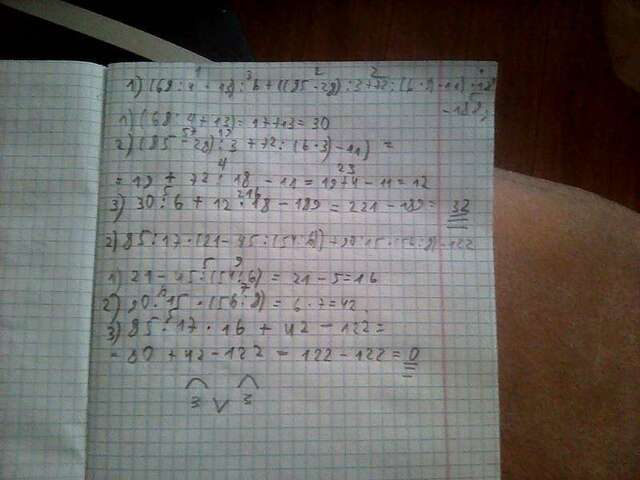 1) (68 : 4 + 13) : 6 + ((85 - 28) : 3 + 72 : (6 · 3) - 11) · 18
- 189;
1) (68 : 4 + 13) = 17 + 13 = 30
2) (85 - 28) : 3 + 72 : (6 · 3) - 11) =
= 19 + 72 : 18 - 11 = 19 + 4 - 11 = 12
3) 30 : 6 + 12 · 18 - 189 = 221 - 189 = 32
2) 85 : 17 · (21 - 45 : (54 : 6)) + 90 : 15 · (56 : 8) - 122
1) 21 - 45 : (54 : 6) = 21 - 5 = 16
2) 90 : 15 · (56 : 8) = 6 · 7 = 42;
3) 85 : 17 · 16 + 42 - 122 =
= 80 + 42 - 122 = 122 - 122 = 0
3 V 3